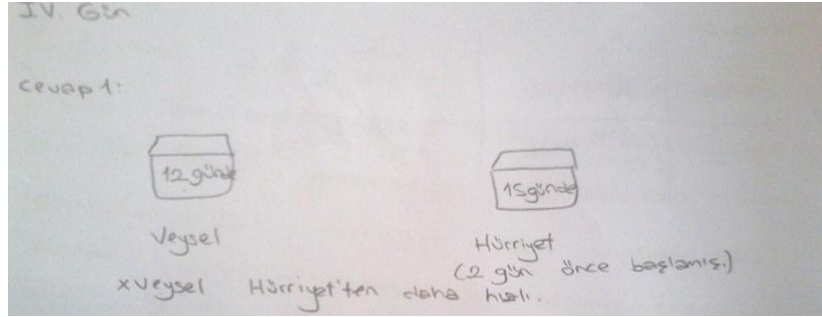 IV. Gün
Cevap 1:
12 günde
15 günde
Veysel
Hürriyet
(2 gün önce başlamış.)
x Veysel Hürriyet'ten daha hızlı.